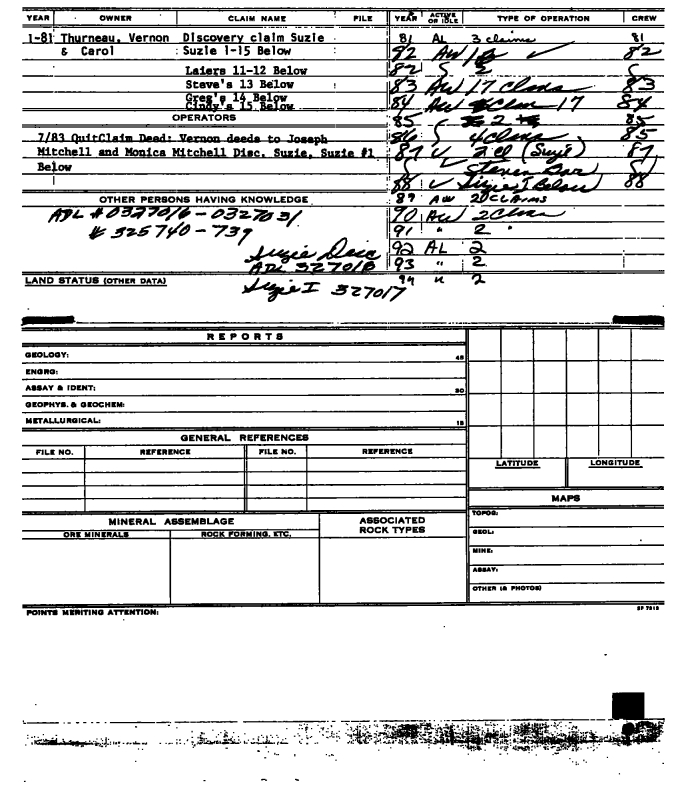 YEAR OWNER CLAIM NAME FILE YEAR ACTIVE OR IDLE TYPE OF OPERATION CREW
1-81 Thurneau, Vernon Discovery claim Suzie 81 AL 3 claims 81
& Carol Suzie 1-15 Below 82 AW 82
Laiers 11-12 Below 82 2
Steve's 13 Below 83 AW 17 Claims 83
Greg's 14 Below 84 AW 17 84
Cindy's 15 Below
OPERATORS 85 2 85
7/83 QuitClaim Deed: Vernon deeds to Joseph 86 4 Claims 85
Mitchell and Monica Mitchell Disc. Suzie, Suzie #1 87 2 cl (Suzie) 87
Below Steven Bar
88 Suzie I Below 88
OTHER PERSONS HAVING KNOWLEDGE 89 AW 2 CLAIMS
ADL #0327016-0327031 90 AW 2 Claims
# 325740-739 91 " 2 "
Suzie Disc 92 AL 2
ADL 327016 93 " 2
LAND STATUS (OTHER DATA) 94 " 2
Suzie I 327017
REPORTS
GEOLOGY: 45
ENGRG:
ASSAY & IDENT: 30
GEOPHYS. & GEOCHEM:
METALLURGICAL: 15
GENERAL REFERENCES
FILE NO. REFERENCE FILE NO. REFERENCE
LATITUDE LONGITUDE
MAPS
MINERAL ASSEMBLAGE ASSOCIATED ROCK TYPES TOPOG:
ORE MINERALS ROCK FORMING, ETC. GEOL:
MINE:
ASSAY:
OTHER (& PHOTOS)
POINTS MERITING ATTENTION: SP 7013